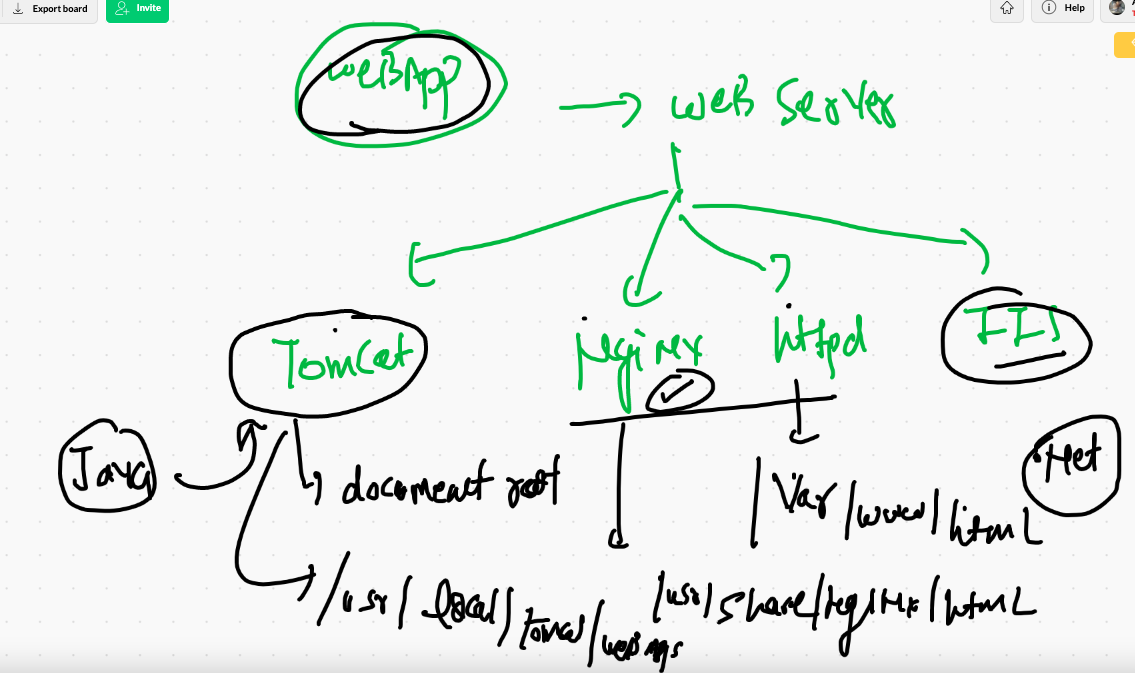 Export board
Invite
Help
WEBAPP
WEB Server
Tomcat
nginx
httpd
IIS
Java
.Net
document root
/var/www/html
/usr/local/tomcat/webapps
/usr/share/nginx/html